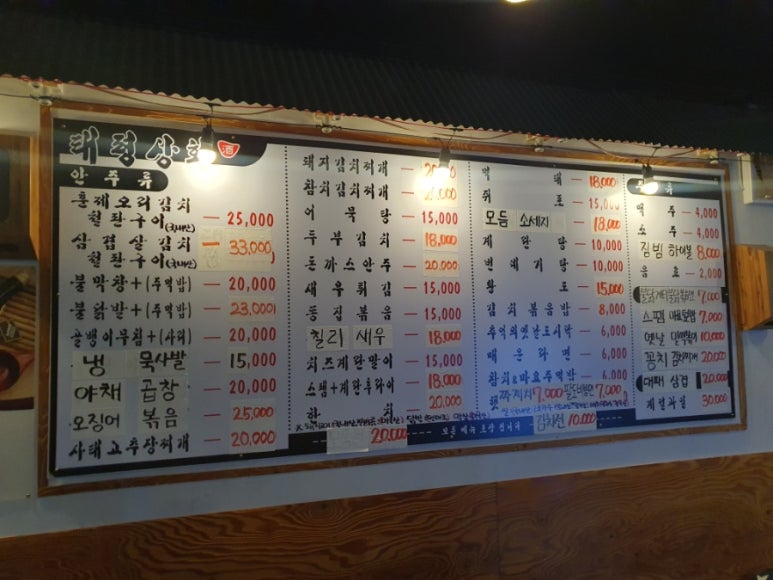 태평상회
안주류
훈제오리김치
철판구이(국내산) — 25,000
삼겹살김치
철판구이(국내산) — 33,000
불막창+(주먹밥) — 20,000
불닭발+(주먹밥) — 23,000
골뱅이무침+(사리) — 20,000
냉 묵사발 — 15,000
야채 곱창 — 20,000
오징어 볶음 — 25,000
사태고추장찌개 — 20,000
돼지김치찌개 — 20,000
참치김치찌개 —
어묵탕 — 15,000
두부김치 — 18,000
돈까스안주 — 20,000
새우튀김 — 15,000
똥집볶음 — 15,000
칠리 새우 — 18,000
치즈계란말이 —
스팸+계란후라이 — 18,000
한치 — 20,000
20,000
먹태 — 18,000
쥐포 — 15,000
모듬 소세지 — 18,000
계란탕 — 10,000
번데기탕 — 10,000
황도 — 15,000
김치볶음밥 — 8,000
추억의옛날도시락 — 6,000
매운라면 — 6,000
참치&마요주먹밥 — 6,000
햇반
짜파게티 7,000
7,000
김치전 10,000
모든 메뉴 포장 됩니다
맥주 — 4,000
소주 — 4,000
짐빔 하이볼 8,000
음료 — 2,000
7,000
7,000
옛날 10,000
꽁치 김치찌개 20,000
대패 삼겹 20,000
계절과일 30,000